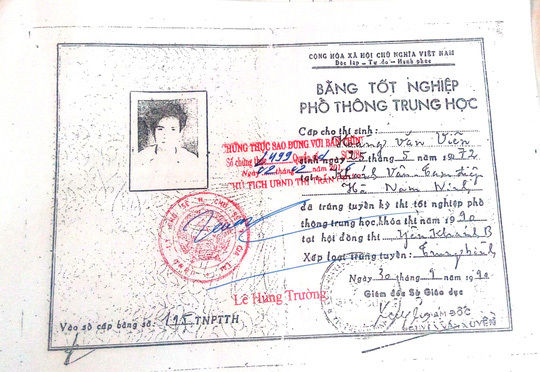 CỘNG HÒA XÃ HỘI CHỦ NGHĨA VIỆT NAM
Độc lập - Tự do - Hạnh phúc
BẰNG TỐT NGHIỆP
PHỔ THÔNG TRUNG HỌC
Cấp cho thí sinh:
Hoàng Văn Viên
sinh ngày 25 tháng 5 năm 1972
Khánh Vân Tam Điệp
Hà Nam Ninh
đã trúng tuyển kỳ thi tốt nghiệp phổ
thông trung học, khóa thi năm 1990
tại hội đồng thi Yên Khánh B
Xếp loại trúng tuyển: Trung bình
Ngày 30 tháng 9 năm 1990
Giám đốc Sở Giáo dục
CHỨNG THỰC SAO ĐÚNG VỚI BẢN CHÍNH
Số chứng thực 499
Ngày 02 tháng 02 năm
CHỦ TỊCH UBND THỊ TRẤN
Lê Hùng Trường
Vào sổ cấp bằng số: 195 TNPTTH